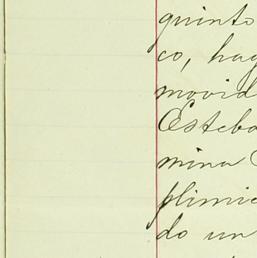 quinto
co, hag
movid
Esteba
mina
plimie
do un